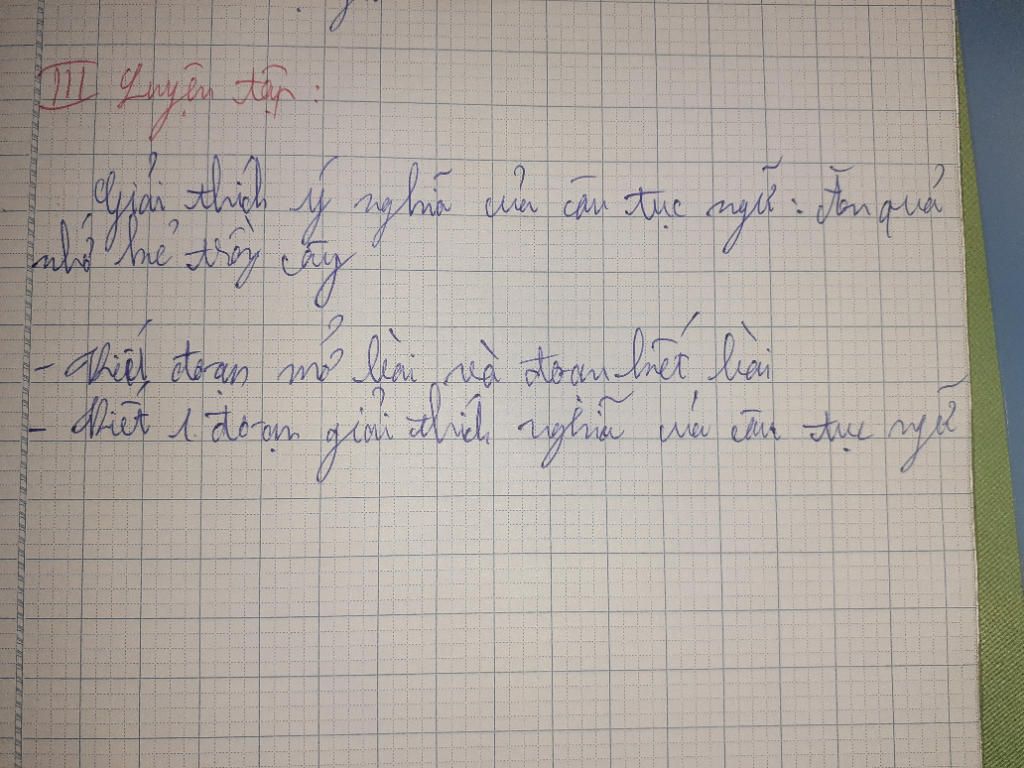 III Luyện tập :
Giải thích ý nghĩa của câu tục ngữ : Ăn quả
nhớ kẻ trồng cây
- Viết đoạn mở bài và đoạn kết bài
- Viết 1 đoạn giải thích nghĩa của câu tục ngữ